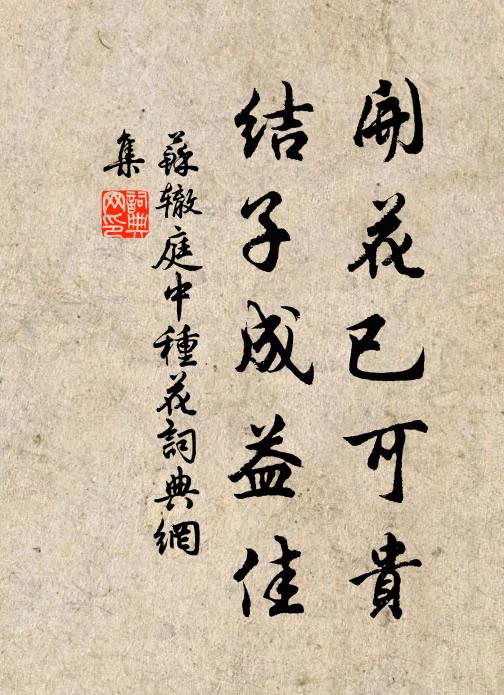 開花已可貴
結子成益佳
蘇轍庭中種花詞典網
集
詞典
网印